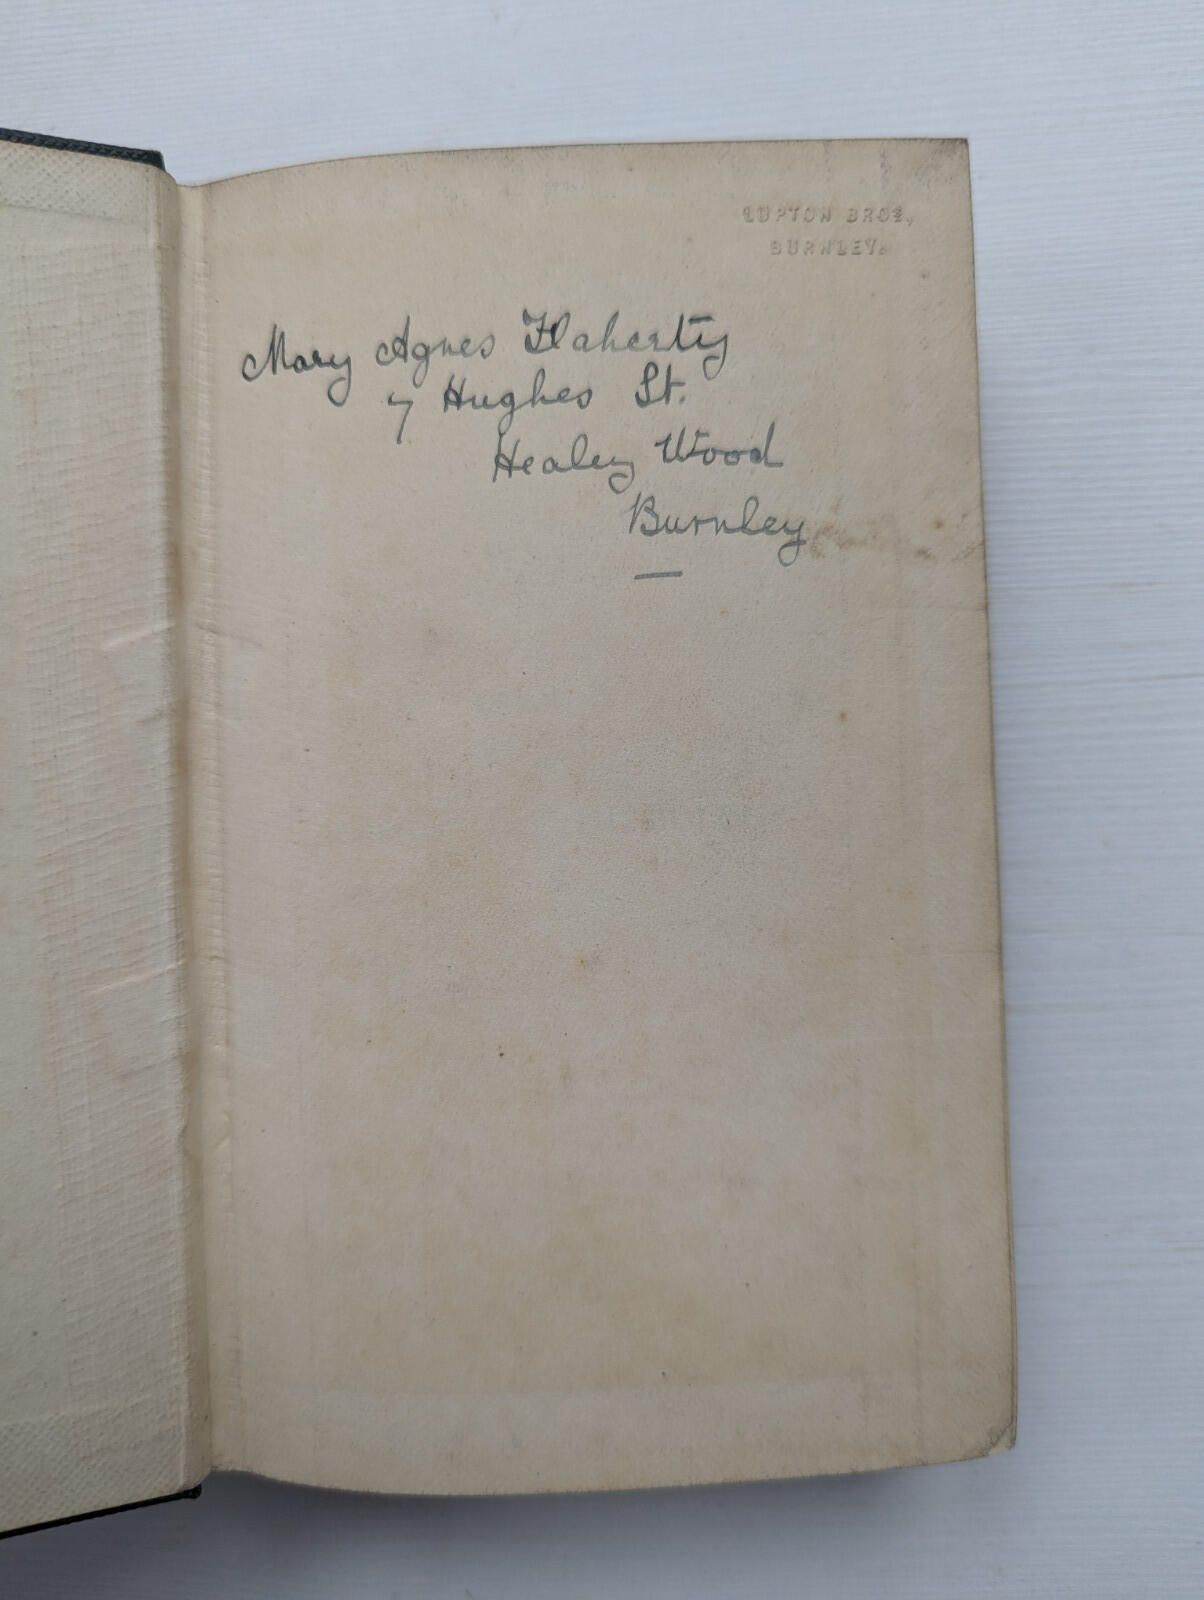 LUPTON BROS,
BURNLEY.
Mary Agnes Flaherty
7 Hughes St.
Healey Wood
Burnley